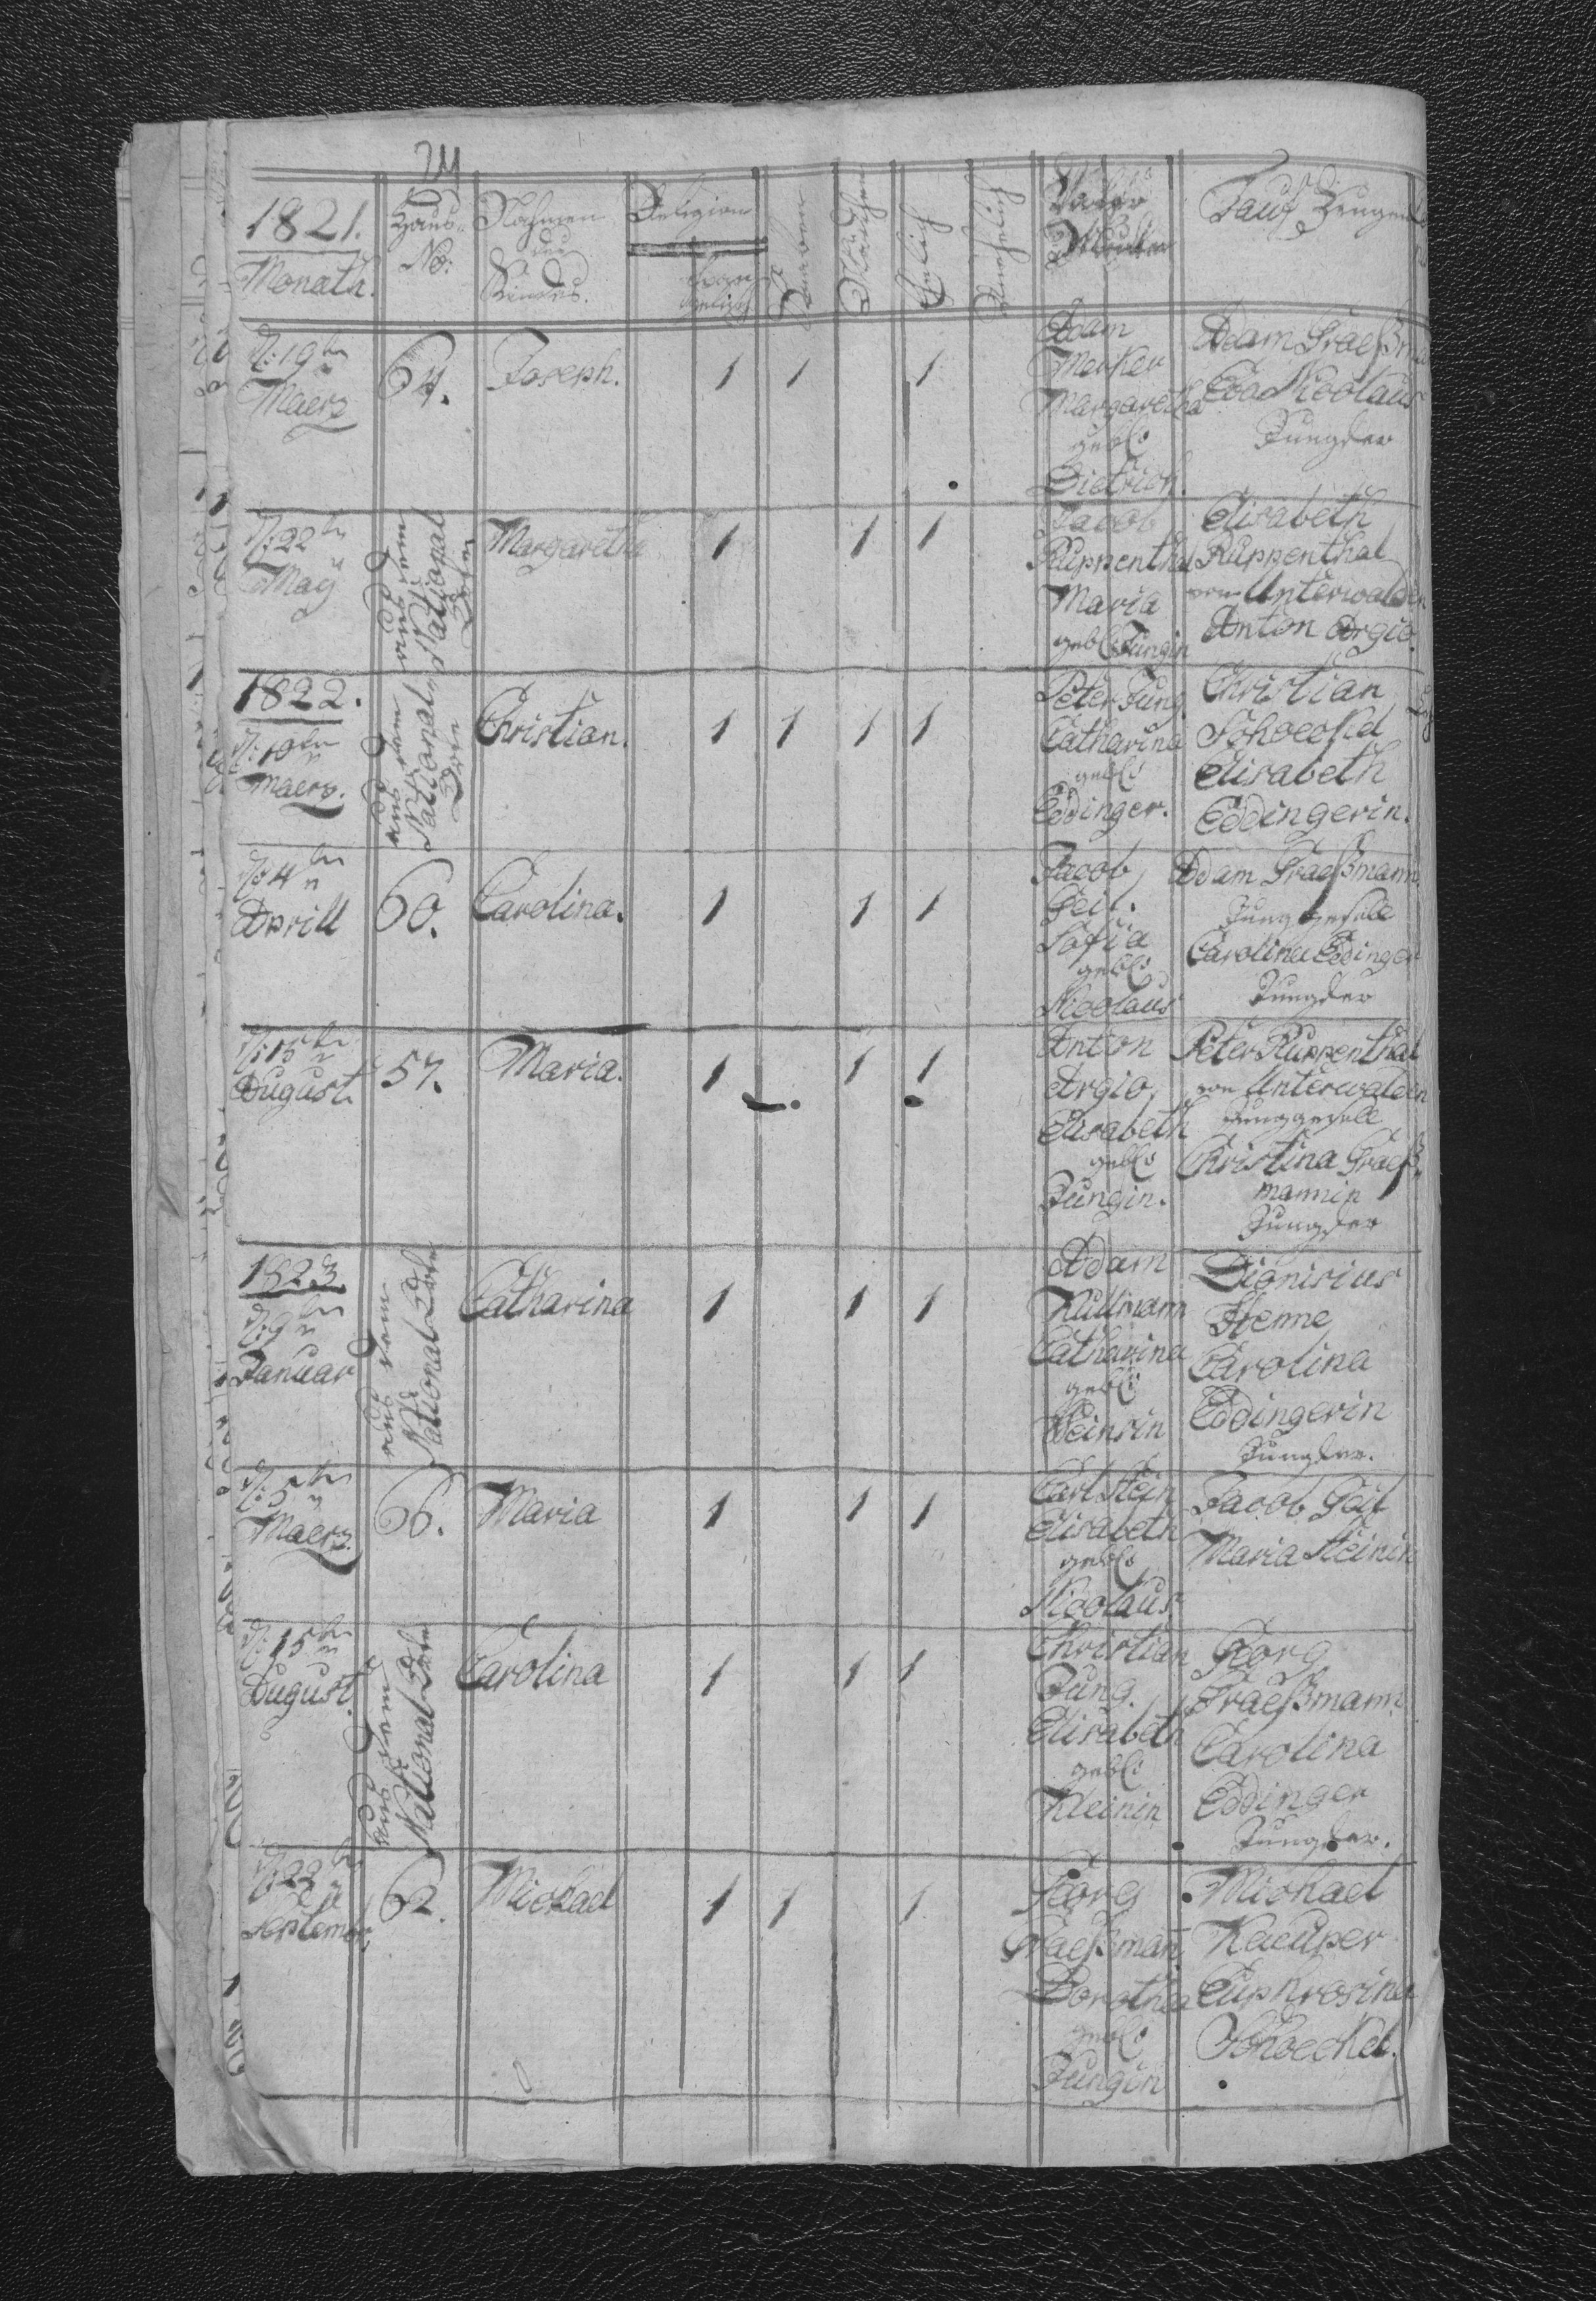 24
1821. Haus- Nahmen Religion Knaben Mädchen Ehelich Unehelich Vater Tauf Zeugen
Monath. No: des Mutter
Kindes. Evan
gelisch
d: 19ten 64. Joseph. 1 1 1 Adam Adam Graeßm
Maerz Merker Eva Nicolaus
Margaretha Jungfer
gebl:
Dietrich.
d: 22ten aus dem National Margaretha 1 1 1 Jacob Elisabeth
May Ruppenthal Ruppenthal
Maria von Unterwalden
gebl: Jungin Anton Argio.
1822. aus dem National Christian. 1 1 1 1 Peter Jung. Christian
d: 10ten Catharina Schoeckel
Maerz. gebl: Elisabeth
Eddinger. Eddingerin.
d: 4ten 60. Carolina. 1 1 1 Jacob Adam Graeßmann
Aprill Geil. Junggesell
Sofia Carolina Eddinger
gebl: Jungfer
Nicolaus
d: 15ten 57. Maria. 1 1 1 Anton Peter Ruppenthal
August Argio, von Unterwalden
Elisabeth Junggesell
gebl: Christina Graeß-
Jungin. mannin
Jungfer
1823. aus dem National Catharina 1 1 1 Adam Dionisius
d: 9ten Kullmann Henne
Januar Catharina Carolina
gebl: Eddingerin
Jungfer.
d: 5ten 66. Maria 1 1 1 Carl Stein Jacob Geil
Maerz. Elisabeth Maria Steinin
gebl:
Nicolaus.
d: 15ten aus dem National Carolina 1 1 1 Christian Georg
August. Jung. Graeßmann
Elisabeth Carolina
gebl: Eddinger
Kleinin Jungfer.
d: 22ten 62. Michael 1 1 1 Georg Michael
Septembr. Graeßmañ Kaeuper
Dorothea Euphrosina
gebl: Schoeckel.
Jungin